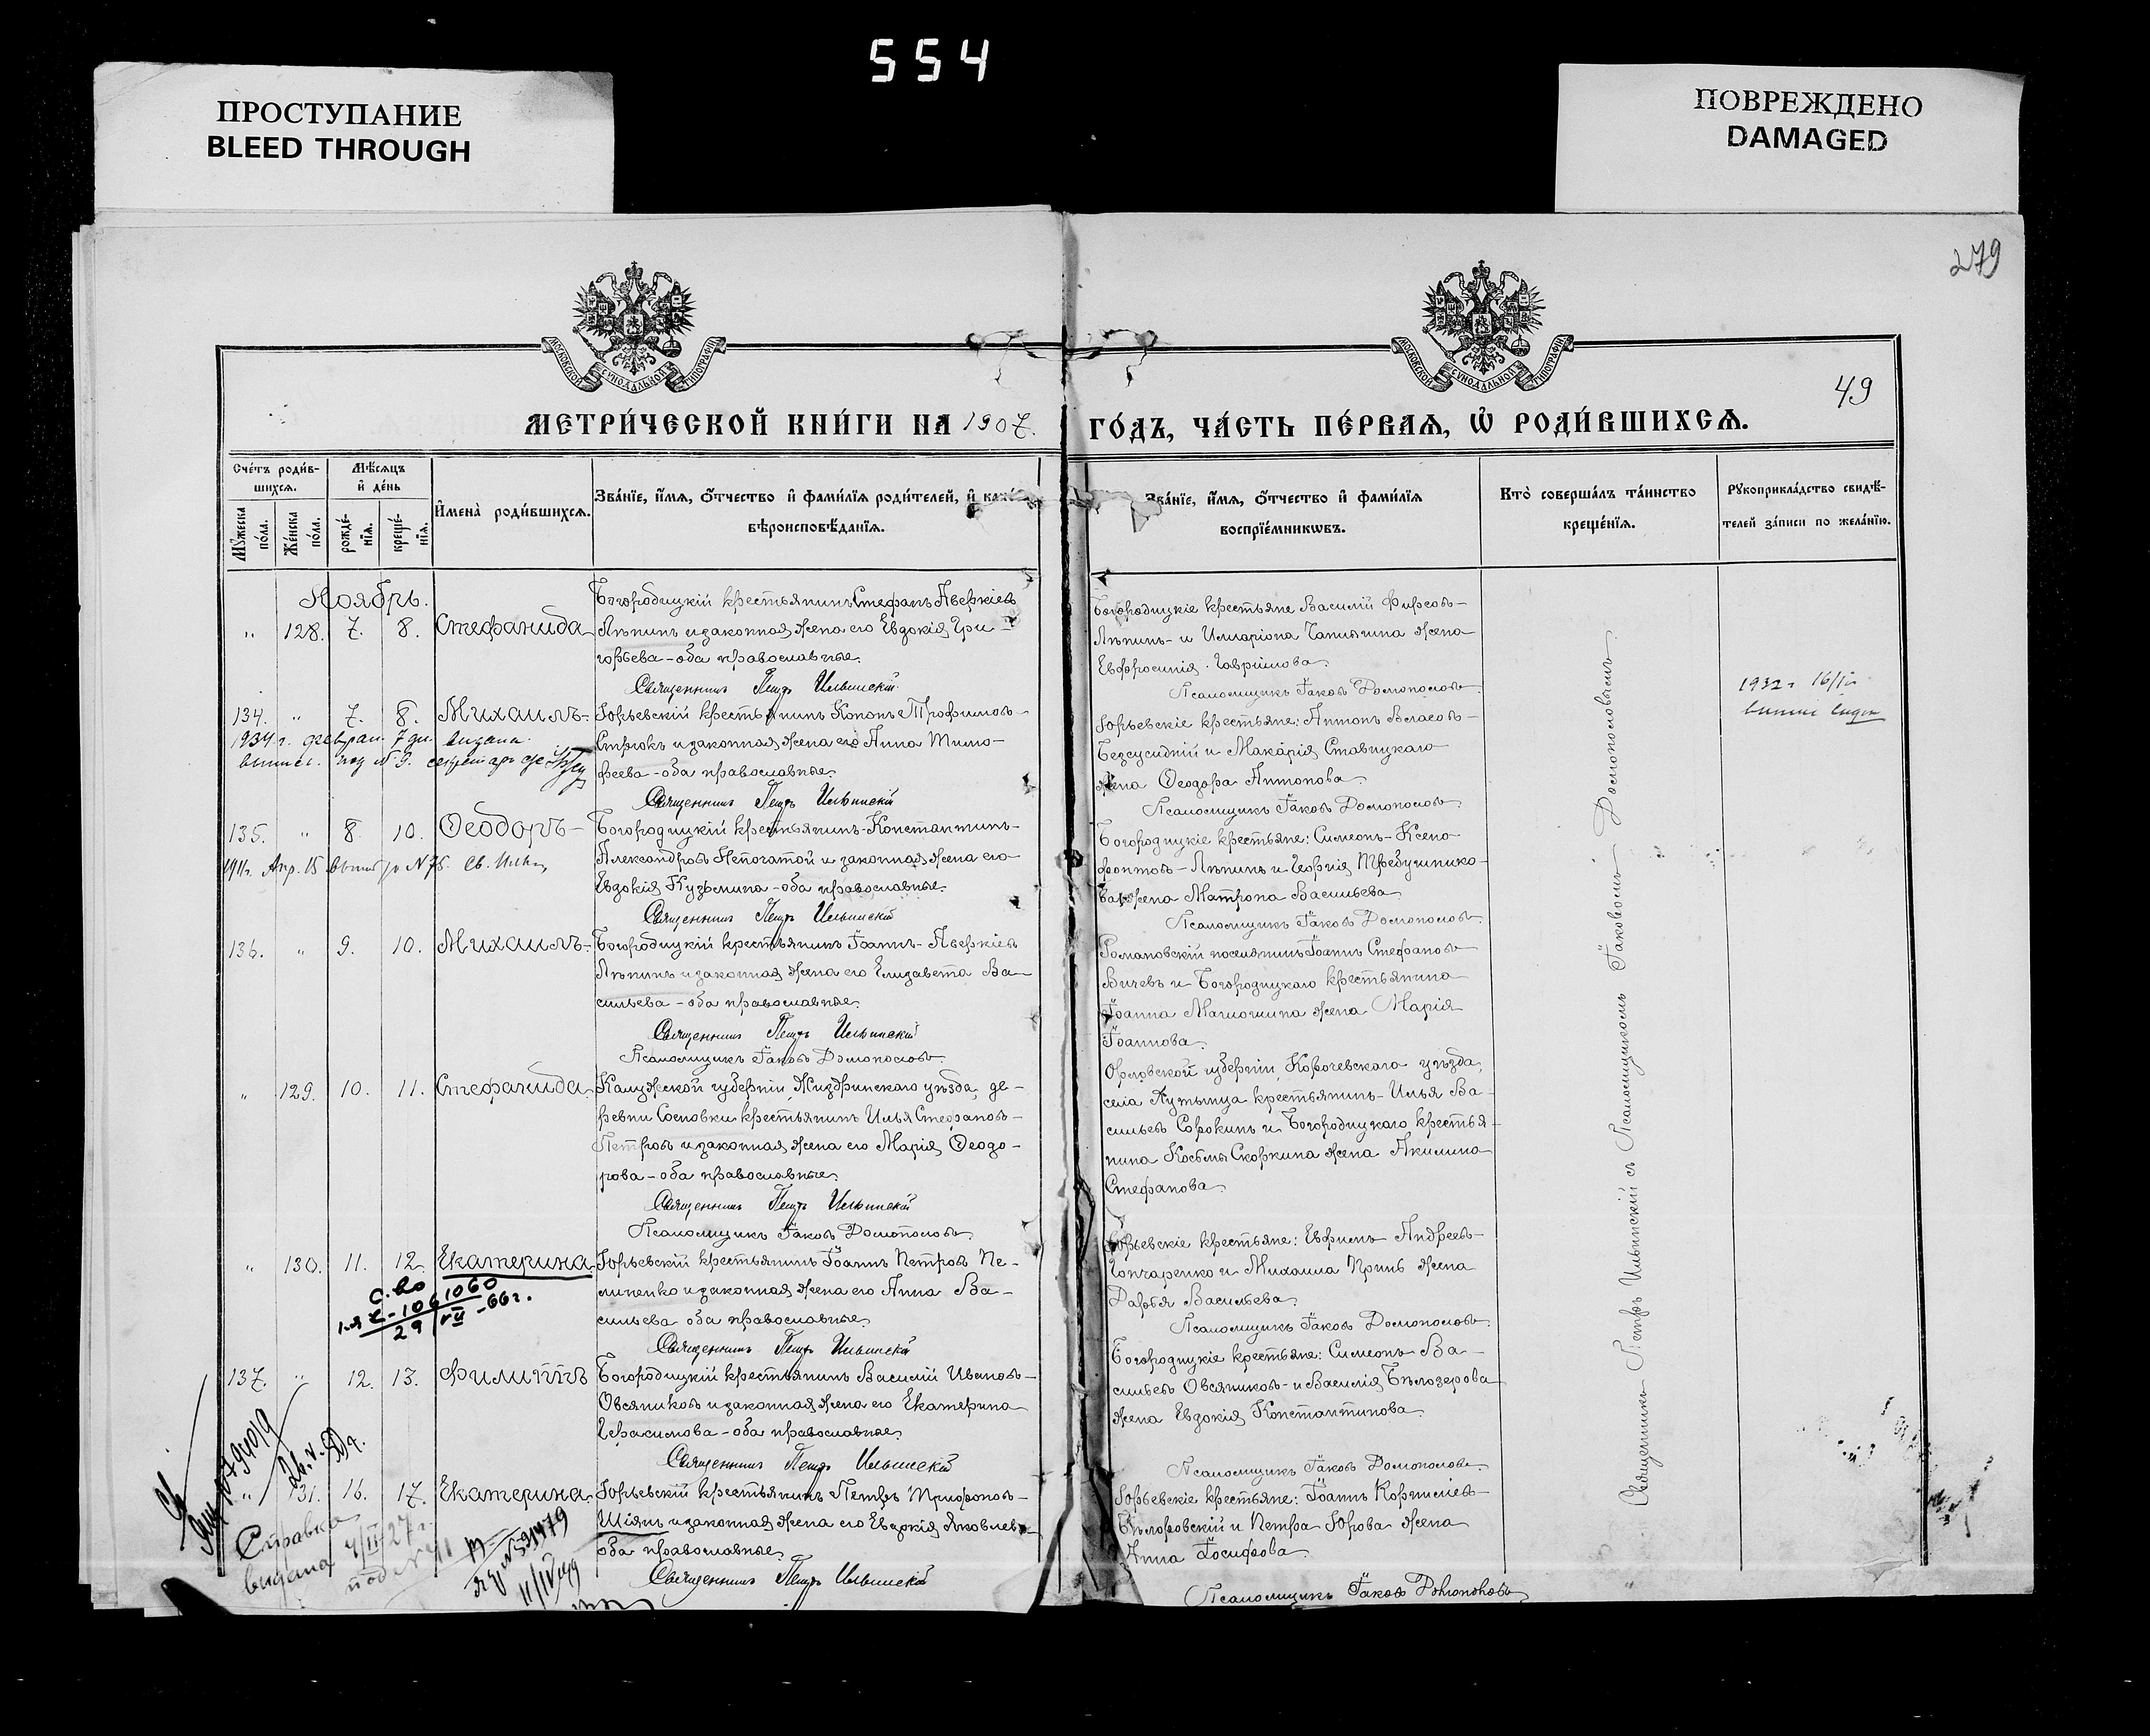 554
ПРОСТУПАНИЕ
BLEED THROUGH
ПОВРЕЖДЕНО
DAMAGED
279
49
МОСКОВСКОЙ СѴНОДАЛЬНОЙ ТИПОГРАФІИ
МОСКОВСКОЙ СѴНОДАЛЬНОЙ ТИПОГРАФІИ
МЕТРИ́ЧЕСКОЙ КНИ́ГИ НА 1907.
ГО́ДЪ, ЧА́СТЬ ПЕ́РВАѦ, Ѡ҆ РОДИ́ВШИХСѦ.
Сче́тъ роди́в-
шихсѧ.
Мѣ́сѧцъ
и҆ де́нь
Мꙋ́жеска по́ла.
Же́нска по́ла.
рожде́-
нїѧ.
креще́-
нїѧ.
И҆мена̀ роди́вшихсѧ.
Зва́нїе, и҆́мѧ, ѻ҆́тчество и҆ фами́лїѧ роди́телей, и҆
вѣроисповѣ́данїѧ.
Зва́нїе, и҆́мѧ, ѻ҆́тчество и҆ фами́лїѧ
воспрїе́мникѡвъ.
Кто̀ соверша́лъ та́инство
креще́нїѧ.
Рꙋкоприкла́дство свидѣ́-
телей за́писи по жела́нїю.
Ноябрь.
" 128. 7. 8. Стефанида
Богородицкій крестьянинъ Стефанъ Аверкіевъ
Лѣпинъ и законная жена его Евдокія Гри-
горьева - оба православные.
Священникъ Петръ Ильинскій
Богородицкіе крестьяне Василій Фирсовъ-
Лѣпинъ - и Илларіона жена
Евфросинія Гавріилова.
Псаломщикъ Іаковъ Домопоповъ
1932 г 16/IV
134. " 7. 8. Михаилъ
1934 г. феврал. 7 дн. выдана
выпись. под № 9.
Юрьевскій крестьянинъ Кононъ Трофимовъ-
и законная жена его Анна Тимо-
феева - оба православные.
Священникъ Петръ Ильинскій
Юрьевскіе крестьяне: Антонъ Власовъ-
и Макарія Ставицкаго
жена Ѳеодора Антонова.
Псаломщикъ Іаковъ Домопоповъ
135. " 8. 10. Ѳеодоръ
1911 г. Апр. 15 № 75. Св. Ильин
Богородицкій крестьянинъ - Константинъ-
Александровъ Непочатой и законная жена его
Евдокія Кузьмина - оба православные.
Священникъ Петръ Ильинскій
Богородицкіе крестьяне: Симеонъ - Ксено-
фонтовъ - Лѣпинъ и Георгія Требушнико-
ва жена Матрона Васильева
Псаломщикъ Іаковъ Домопоповъ
136. " 9. 10. Михаилъ
Богородицкій крестьянинъ Іоаннъ - Аверкіевъ
Лѣпинъ и законная жена его Елизавета Ва-
сильева - оба православные.
Священникъ Петръ Ильинскій
Псаломщикъ Іаковъ Домопоповъ
Романовскій поселянинъ Іоаннъ Стефановъ
Бичевъ и Богородицкаго крестьянина
Іоанна жена Марія
Іоаннова.
" 129. 10. 11. Стефанида
Калужской губерніи, Жиздринскаго уѣзда, де-
ревни Сосновки крестьянинъ Илья Стефановъ-
Петровъ и законная жена его Марія Ѳеодо-
рова - оба православные.
Священникъ Петръ Ильинскій
Псаломщикъ Іаковъ Домопоповъ
Орловской губерніи, Корочевскаго уѣзда,
села крестьянинъ - Илья Ва-
сильевъ Сорокинъ и Богородицкаго крестья-
нина Косьмы Скоркина жена Акилина
Стефанова.
" 130. 11. 12. Екатерина
с-во
29 VII - 66 г.
Юрьевскій крестьянинъ Іоаннъ Петровъ Пе-
липенко и законная жена его Анна Ва-
сильева оба православные
Священникъ Петръ Ильинскій
Юрьевскіе крестьяне: Евфимъ Андреевъ-
Гончаренко и Михаила жена
Дарья Васильева.
Псаломщикъ Іаковъ Домопоповъ
137. " 12. 13. Филиппъ
Богородицкій крестьянинъ Василій Ивановъ-
Овсяниковъ и законная жена его Екатерина
Герасимова - оба православные.
Священникъ Петръ Ильинскій
Богородицкіе крестьяне: Симеонъ Ва-
сильевъ Овсяниковъ - и Василія Бѣлозерова
жена Евдокія Константинова.
Псаломщикъ Іаковъ Домопоповъ
" 131. 16. 17. Екатерина
Справка
выдана 4/III 27 г.
под №
Юрьевскій крестьянинъ Петръ Трифоновъ-
Шіянъ и законная жена его Евдокія Яковлева
оба православные.
Священникъ Петръ Ильинскій
Юрьевскіе крестьяне: Іоаннъ Корнилиевъ-
и Петра Юрова жена
Анна Іосифова.
Псаломщикъ Іаковъ Домопоповъ
Священникъ Петръ Ильинскій съ Псаломщикомъ Іаковомъ Домопоповымъ